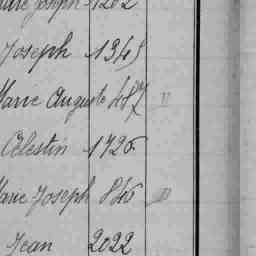 Marie Joseph 1262
Joseph 1345
Marie Auguste 487 "
Célestin 1726
Marie Joseph 846 "
Jean 2022